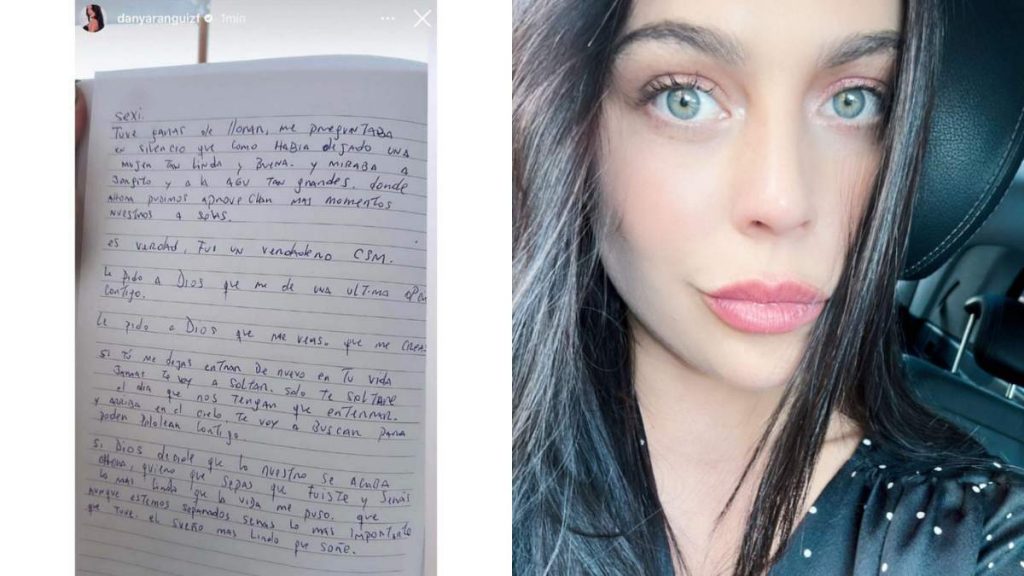 danyaranguizf 1min
sexi.
Tuve ganas de llorar, me preguntaba
en silencio que como había dejado una
mujer tan linda y buena. y miraba a
y a la tan grandes. donde
ahora pudimos aprovechar mas momentos
nuestros a solas.
es verdad, fui un verdadero CSM.
Le pido a Dios que me de una ultima
contigo.
Le pido a Dios que me que me
si tú me dejas entrar de nuevo en tu vida
jamas te voy a soltar, solo te soltare
el dia que nos tengan que enterrar.
y arriba en el cielo te voy a buscar para
poder pololear contigo.
si Dios decide que lo nuestro se acaba
ahora, quiero que sepas que fuiste y serás
lo mas linda que la vida me puso. que
aunque estemos separados seras lo mas importante
que tuve. el sueño mas lindo que soñe.